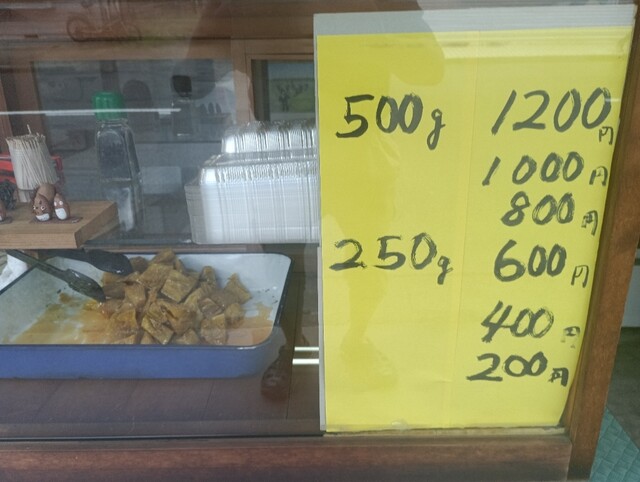 500g 1200円
1000円
800円
250g 600円
400円
200円